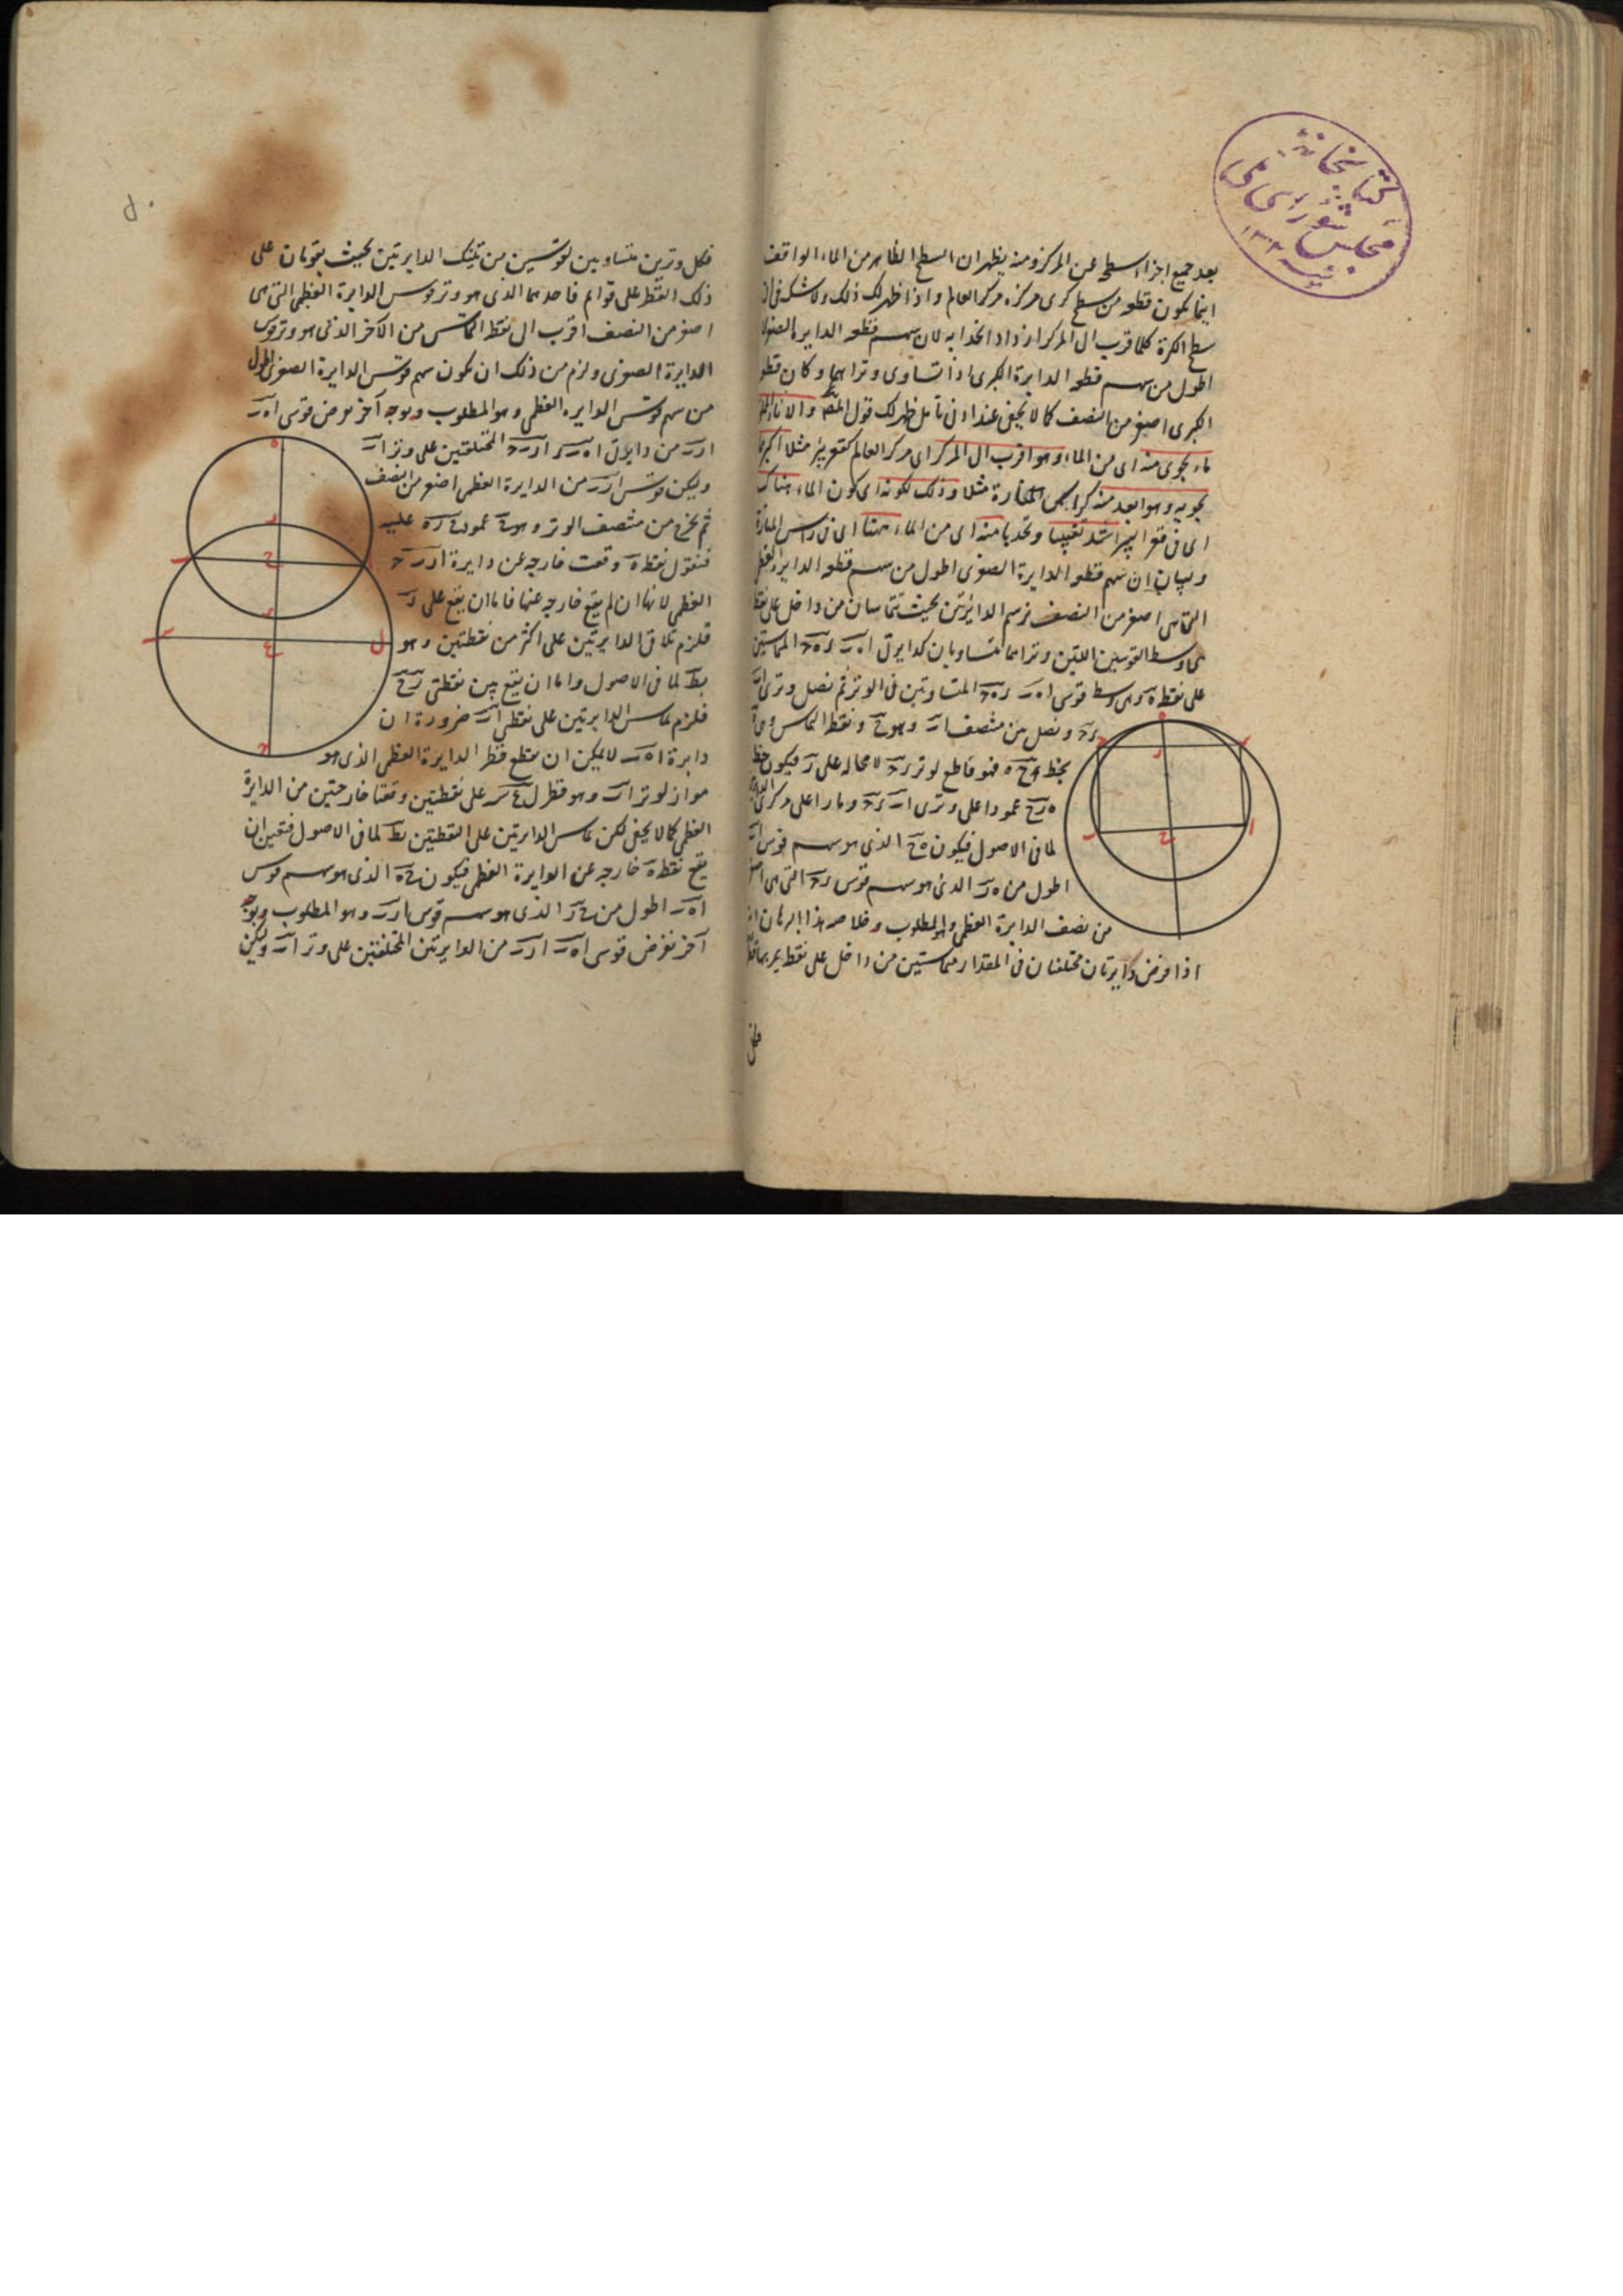 بعد جميع اجزاء السطح عن المركز ومنه يظهر ان السطح الظاهر من الماء الواقف
اينما يكون قطعه من سطح كرى مركزه مركز العالم واذا ظهر لك ذلك ولا شك فى ان
سطح الكرة كلما قرب الى المركز ازداد انحدابه لان سهم قطعه الدايرة الصغرى
اطول من سهم قطعه الدايرة الكبرى اذا تساوى وتراهما وكان قطعه
الكبرى اصغر من النصف كما لا يخفى عند ادنى تأمل ظهر لك قول المص والاناء
ماء يحوى منه اى من الماء وهو اقرب الى المركز اى مركز العالم كقعر بئر مثلا اكثر مما
يحويه وهو ابعد منه كرأس المنارة مثلا وذلك لكونه اى كون الماء هناك
اى فى قعر البئر اشد تقبيبا وتحدبا منه اى من الماء ههنا اى فى راس المنارة
ولبيان ان سهم قطعه الدايرة الصغرى اطول من سهم قطعه الدايرة العظمى
التى هى اصغر من النصف نرسم الدايرتين بحيث تتماسان من داخل على نقطه
هى وسط القوسين اللتين وتراهما متساويان كدايرتى اه ب ده ح المتماستين
على نقطه ه وهى وسط قوسى اه ب ده ح المتساويتين فى الوتر ثم نصل وترى اب
د ح ونصل بين منتصف اب وهو ح ونقطه التماس وهى ه
بخط ح ه فهو قاطع لوتر د ح لا محاله على ر فيكون خط
ه ر ح عمودا على وترى اب د ح ومارا على مركزى
لما فى الاصول فيكون ه ح الذى هو سهم قوس اه ب
اطول من ه ر الذى هو سهم قوس د ح التى هى اصغر
من نصف الدايرة العظمى وهو المطلوب وخلاصه هذا البرهان انه
اذا فرض دايرتان مختلفتان فى المقدار متماستين من داخل على نقطه يمر بها قطر
فكل وترين متساويين لقوسين من تينك الدايرتين بحيث يقومان على
ذلك القطر على قوائم فاحدهما الذى هو وتر قوس الدايرة العظمى التى هى
اصغر من النصف اقرب الى نقطه التماس من الآخر الذى هو وتر قوس
الدايرة الصغرى ولزم من ذلك ان يكون سهم قوس الدايرة الصغرى اطول
من سهم قوس الدايره العظمى وهو المطلوب وبوجه آخر نفرض قوسى اه ب
ار ب من دايرتى اه ب ار ب ح المختلفتين على وتر اب
وليكن قوس ار ب من الدايرة العظمى اصغر من النصف
ثم نخرج من منتصف الوتر وهو ح عمود ح ر ه عليه
فنقول نقطه ه وقعت خارجه عن دايرة ار ب ح
العظمى لانها ان لم يقع خارجه عنها فاما ان يقع على ر
فلزم تلاقى الدايرتين على اكثر من نقطتين وهو
بط لما فى الاصول واما ان يقع بين نقطتى ر ح
فلزم تماس الدايرتين على نقطتى اب ضرورة ان
دايرة اه ب لا يمكن ان يقطع قطر الدايرة العظمى الذى هو
مواز لوتر اب وهو قطر ل ع س على نقطتين وقعتا خارجتين من الدايرة
العظمى كما لا يخفى لكن تماس الدايرتين على النقطتين بط لما فى الاصول فتعين ان
يقع نقطه ه خارجه عن الدايرة العظمى فيكون ح ه الذى هو سهم قوس
اه ب اطول من ح ر الذى هو سهم قوس ار ب وهو المطلوب وبوجه
آخر نفرض قوسى اه ب ار ب من الدايرتين المختلفتين على وتر اب وليكن
كتابخانه
مجلس شوراى ملى